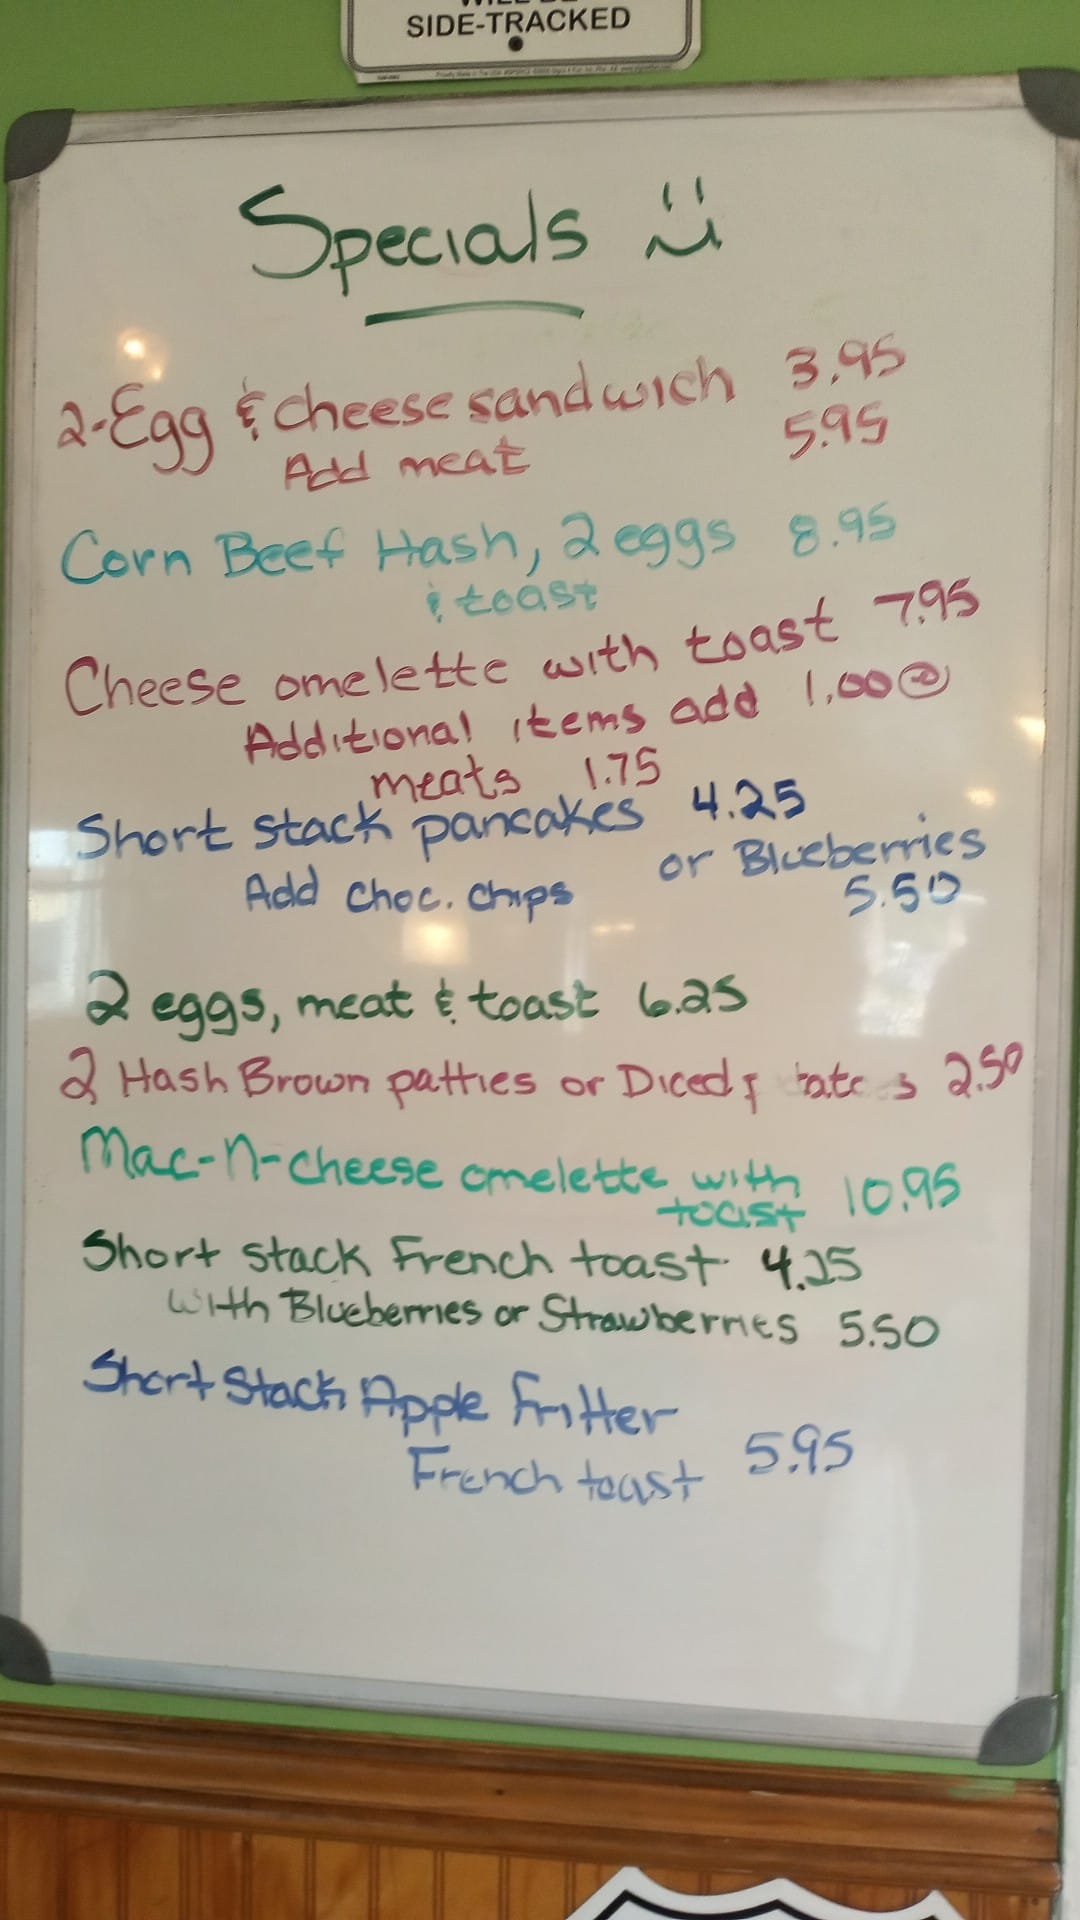 SIDE-TRACKED
Specials
2-Egg & cheese sandwich 3.95
Add meat 5.95
Corn Beef Hash, 2 eggs 8.95
& toast
Cheese omelette with toast 7.95
Additional items add 1.00
meats 1.75
Short stack pancakes 4.25
Add choc. chips or Blueberries
5.50
2 eggs, meat & toast 6.25
2 Hash Brown patties or Diced 2.50
Mac-n-cheese omelette with
toast 10.95
Short stack French toast 4.25
with Blueberries or Strawberries 5.50
Short Stack Apple Fritter
French toast 5.95